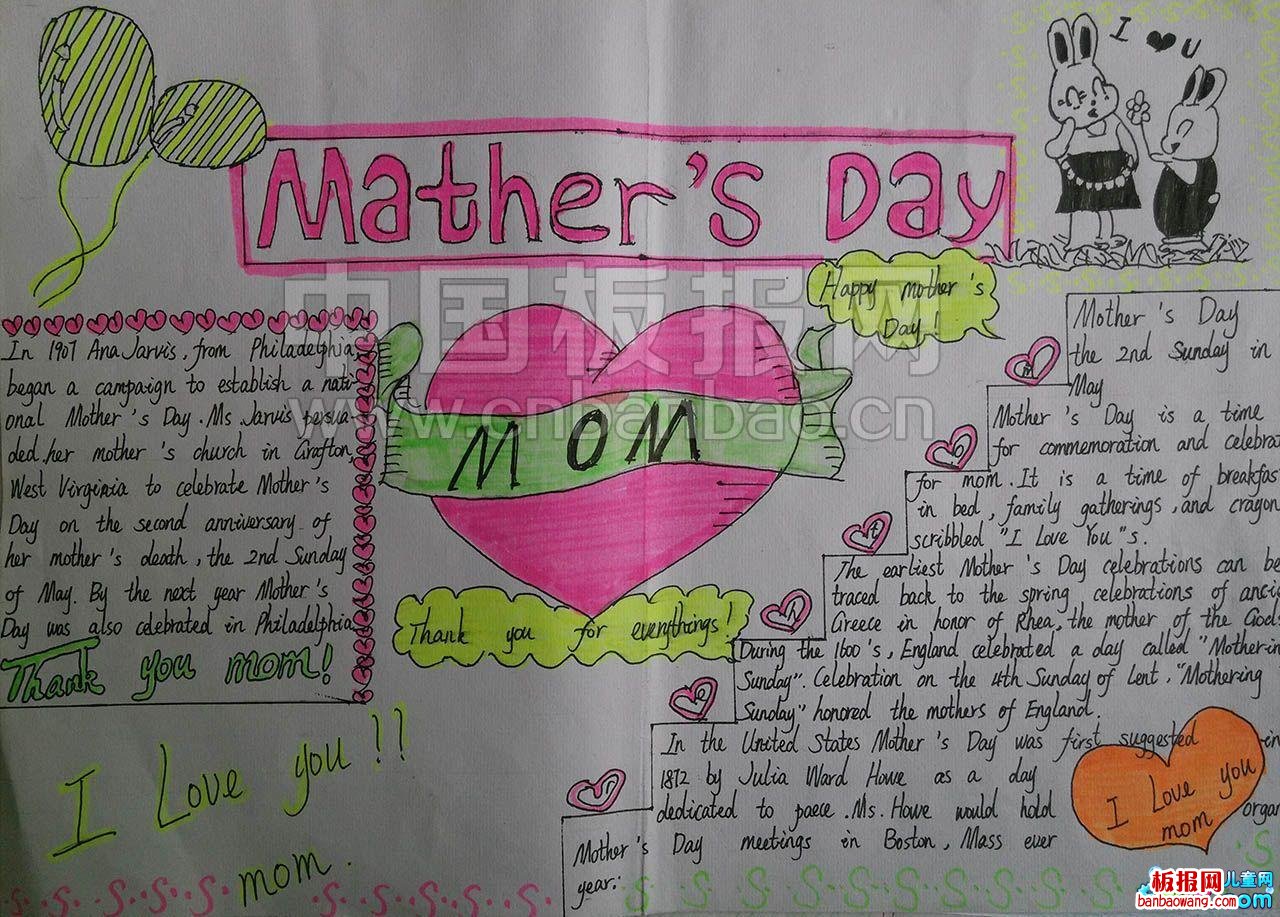 I ♥ U
Mather's Day
Happy mother's
Day!
中国板报网
www.cnbanbao.cn
MOM
In 1907 Ana Jarvis, from Philadelphia,
began a campaign to establish a nati-
onal Mother's Day. Ms. Jarvis persua-
ded her mother's church in Grafton,
West Virginia to celebrate Mother's
Day on the second anniversary of
her mother's death, the 2nd Sunday
of May. By the next year Mother's
Day was also celebrated in Philadelphia
Thank you mom!
Thank you for everythings!
I Love you!!
mom.
Mother's Day
the 2nd Sunday in
May
Mother's Day is a time
for commemoration and celebra
for mom. It is a time of breakfas
in bed, family gatherings, and crayon
scribbled "I Love You"s.
The earliest Mother's Day celebrations can be
traced back to the spring celebrations of anci
Greece in honor of Rhea, the mother of the Gods
During the 1600's, England celebrated a day called "Mother-in
Sunday". Celebration on the 4th Sunday of Lent, "Mothering
Sunday" honored the mothers of England.
In the United States Mother's Day was first suggested in
1872 by Julia Ward Howe as a day
dedicated to paece. Ms. Howe would hold organ
Mother's Day meetings in Boston, Mass ever
year.
m
o
t
h
e
r
I Love you
mom
板报网儿童网
banbaowang.com